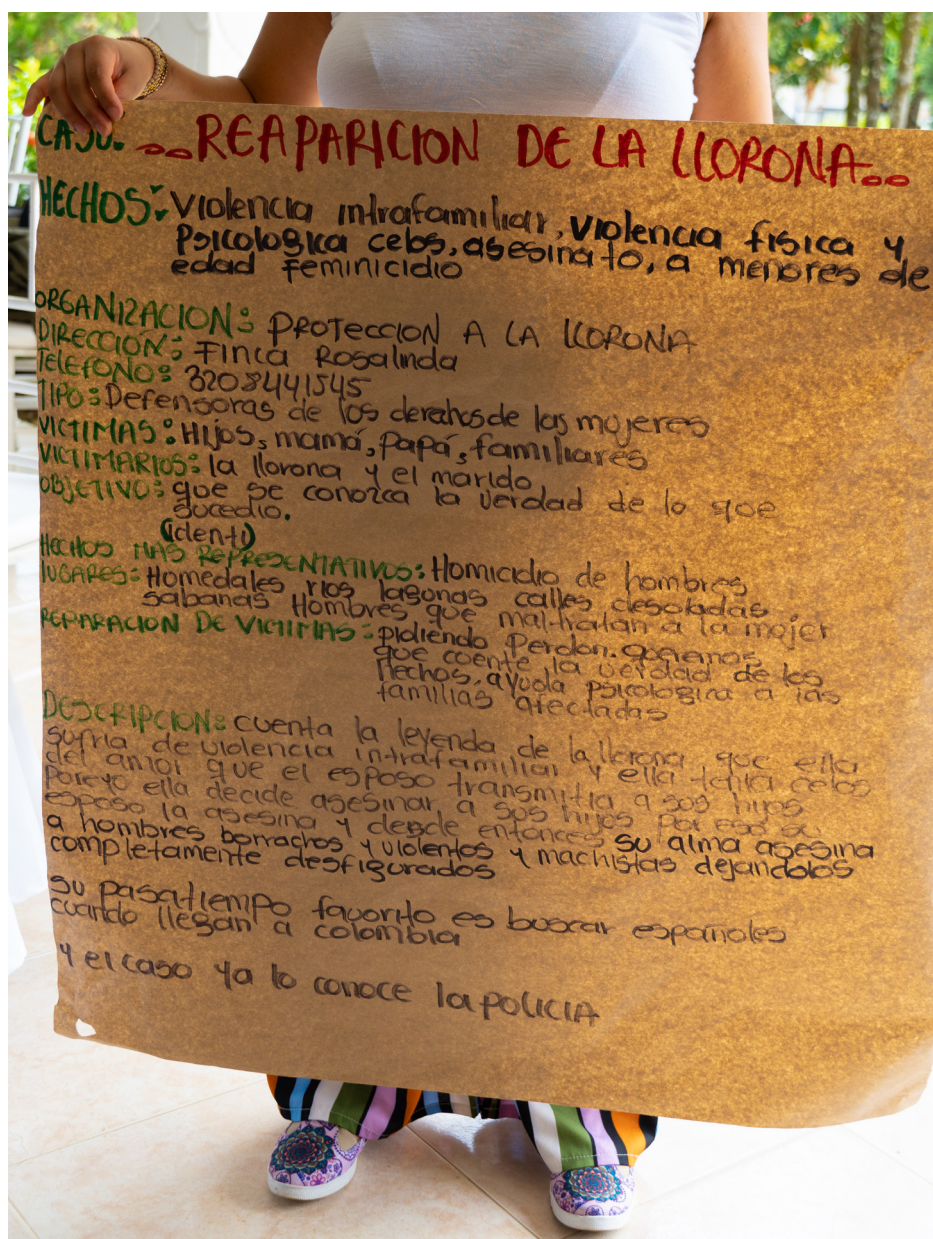 CASO. ...REAPARICION DE LA LLORONA...
HECHOS: Violencia intrafamiliar, violencia fisica y
Psicologica celos, asesinato, a menores de
edad feminicidio
ORGANIZACION: PROTECCION A LA LLORONA
DIRECCIÓN: Finca Rosalinda
TELEFONO: 3208441545
TIPO: Defensoras de los derehos de las mujeres
VICTIMAS: Hijos, mamá, papá, familiares
VICTIMARIOS: la llorona y el marido
OBJETIVO: que se conozca la verdad de lo que
sucedio.
(identi)
HECHOS MAS REPRESENTATIVOS: Homicidio de hombres
LUGARES: Homedales rios lagunas calles desoladas,
sabanas Hombres que maltratan a la mujer
REPARACION DE VICTIMAS: pidiendo Perdon. queremos
que cuente la verdad de los
Hechos, ayuda psicologica a las
familias afectadas
DESCRIPCION: cuenta la leyenda de la llorona que ella
sufria de violencia intrafamiliar y ella tenia celos
del amor que el esposo transmitia a sus hijos
Por eyo ella decide asesinar, a sus hijos Por eso su
esposo la asesina y desde entonces su alma asesina
a hombres borrachos y violentos y machistas dejandolos
completamente desfigurados
su pasatiempo favorito es buscar españoles
cuando llegan a colombia
y el caso ya lo conoce la POLICIA